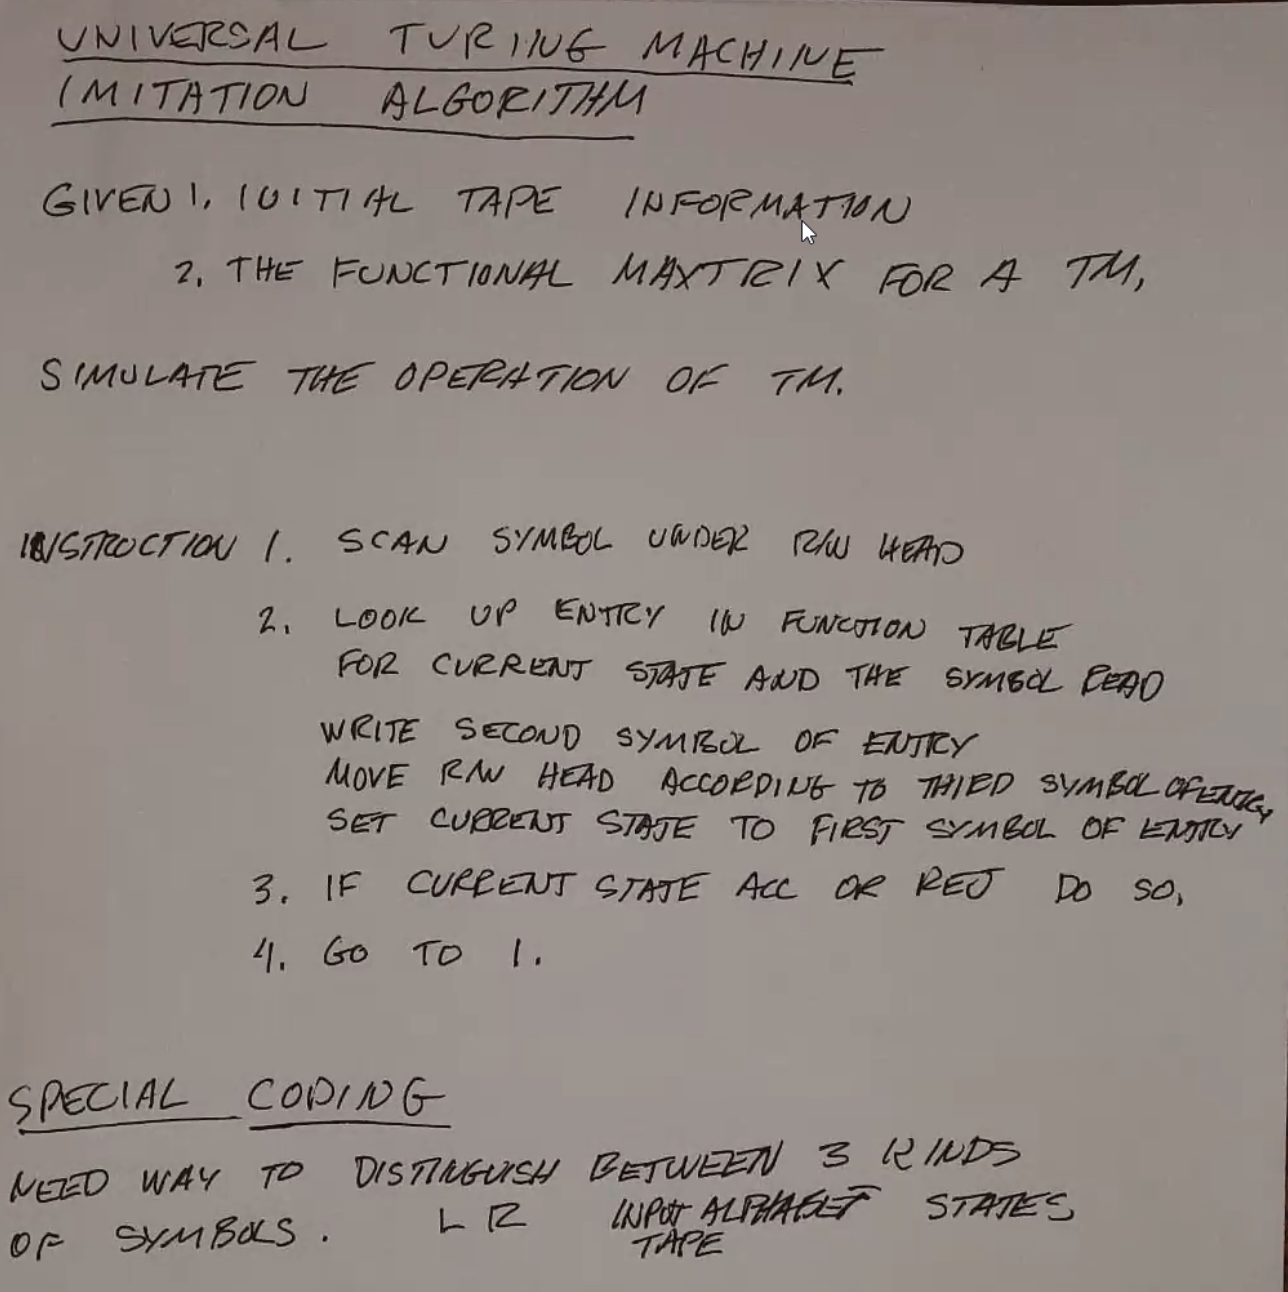 UNIVERSAL TURING MACHINE
IMITATION ALGORITHM
GIVEN 1. INITIAL TAPE INFORMATION
2. THE FUNCTIONAL MAXTRIX FOR A TM,
SIMULATE THE OPERATION OF TM.
INSTRUCTION 1. SCAN SYMBOL UNDER R/W HEAD
2. LOOK UP ENTRY IN FUNCTION TABLE
FOR CURRENT STATE AND THE SYMBOL READ
WRITE SECOND SYMBOL OF ENTRY
MOVE R/W HEAD ACCORDING TO THIRD SYMBOL OF ENTRY,
SET CURRENT STATE TO FIRST SYMBOL OF ENTRY
3. IF CURRENT STATE ACC OR REJ DO SO,
4. GO TO 1.
SPECIAL CODING
NEED WAY TO DISTINGUISH BETWEEN 3 KINDS
OF SYMBOLS. L R INPUT ALPHABET STATES
TAPE